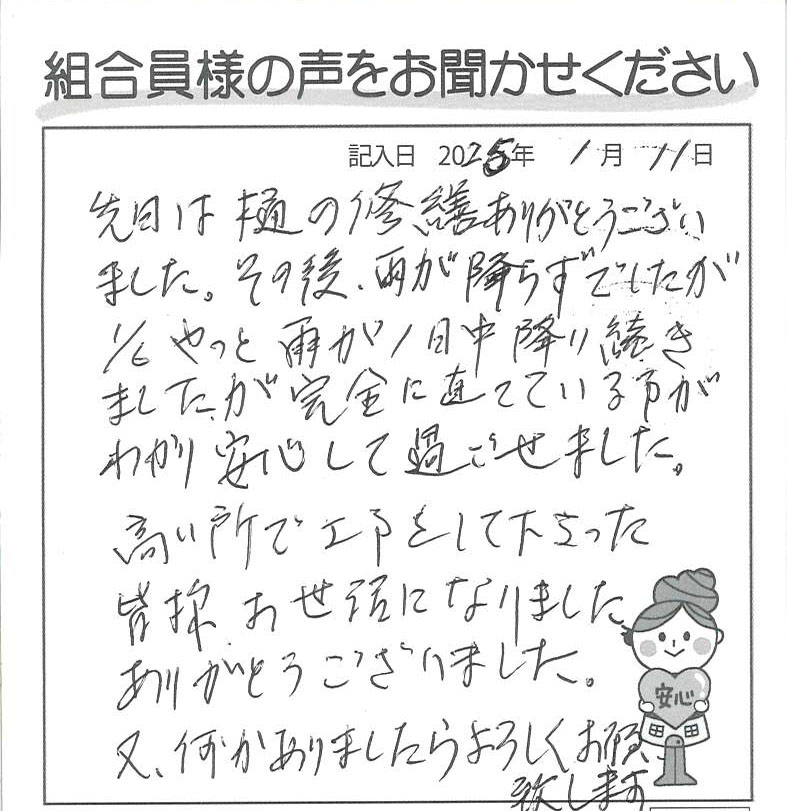 組合員様の声をお聞かせください
記入日 2025年 1月 11日
先日は樋の修繕ありがとうござい
ました。その後、雨が降らずでしたが
1/6 やっと雨が1日中降り続き
ましたが完全に直っている事が
わかり安心して過ごせました。
高い所で工事をして下さった
皆様お世話になりました
ありがとうございました。
又、何かありましたらよろしくお願
致します
安心